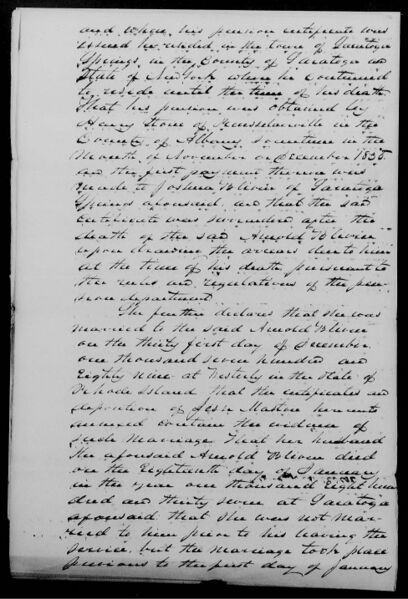 and when his pension certificate was
issued he resided in the town of Saratoga
Springs, in the County of Saratoga and
State of New York where he continued
to reside until the time of his death
That his pension was obtained by
Henry Stone of Rensselaerville in the
County of Albany sometime in the
Month of November or December 1835.
and the first payment thereon was
made to Joshua Bliven of Saratoga
Springs aforesaid, and that the said
certificate was surrendered after the
death of the said Arnold Bliven
upon drawing the arrears due to him
at the time of his death pursuant to
the rules and regulations of the pen-
sion department
She further declares that she was
married to the said Arnold Bliven
on the thirty first day of December
one thousand seven hundred and
Eighty Nine at Westerly in the State of
Rhode Island that the certificates and
deposition of Maston hereunto
annexed contain the evidence of
such Marriage That her husband
the aforesaid Arnold Bliven died
on the Eighteenth day of January
in the year one thousand Eight hun
dred and thirty seven at Saratoga
aforesaid that she was not mar-
ried to him prior to his leaving the
service, but the marriage took place
previous to the first day of January